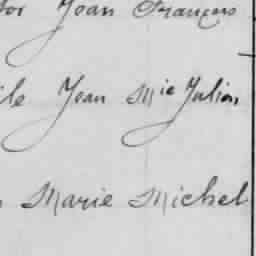 Jean François
Jean Mie Julien
Marie Michel